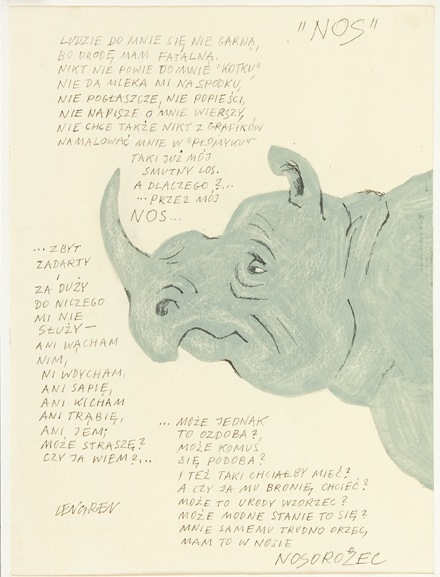 "NOS"
LUDZIE DO MNIE SIĘ NIE GARNĄ,
BO URODĘ MAM FATALNĄ.
NIKT NIE POWIE DO MNIE "KOTKU"
NIE DA MLEKA MI NA SPODKU,
NIE POGŁASZCZE, NIE POPIEŚCI,
NIE NAPISZE O MNIE WIERSZY,
NIE CHCE TAKŻE NIKT Z GRAFIKÓW
NAMALOWAĆ MNIE W "PŁOMYKU"
TAKI JUŻ MÓJ
SMUTNY LOS.
A DLACZEGO?...
...PRZEZ MÓJ
NOS...
...ZBYT
ZADARTY
I
ZA DUŻY
DO NICZEGO
MI NIE
SŁUŻY—
ANI WĄCHAM
NIM,
NI WDYCHAM,
ANI SAPIĘ,
ANI KICHAM
ANI TRĄBIĘ,
ANI JEM;
MOŻE STRASZĘ?
CZY JA WIEM?...
...MOŻE JEDNAK
TO OZDOBA?,
MOŻE KOMUŚ
SIĘ PODOBA?
I TEŻ TAKI CHCIAŁBY MIEĆ?
A CZY JA MU BRONIĘ CHCIEĆ?
MOŻE TO URODY WZORZEC?
MOŻE MODNE STANIE TO SIĘ?
MNIE SAMEMU TRUDNO ORZEC,
MAM TO W NOSIE
NOSOROŻEC
LENGREN